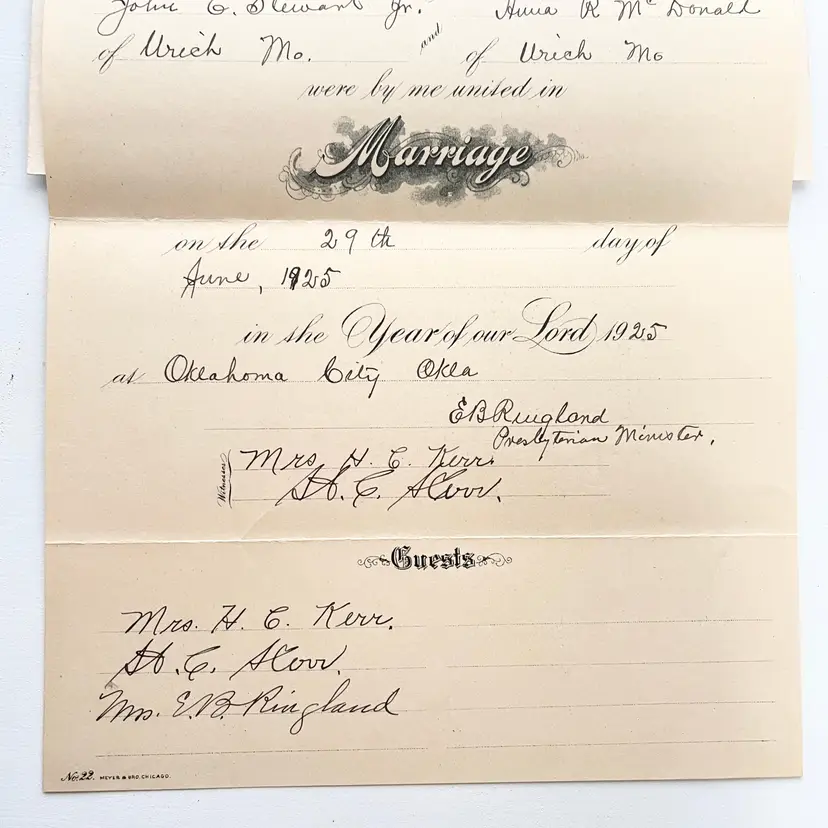 John C. Stewart Jr. and Anna R Mc Donald
of Urich Mo. of Urich Mo
were by me united in
Marriage
on the 29th day of
June, 1925
in the Year of our Lord 1925
at Oklahoma City Okla
E B Ringland
Presbyterian Minister,
Witnesses
Mrs. H. C. Kerr.
H. C. Kerr.
Guests
Mrs. H. C. Kerr.
H. C. Kerr.
Mrs. E. B. Ringland
No. 22. MEYER & BRO. CHICAGO.